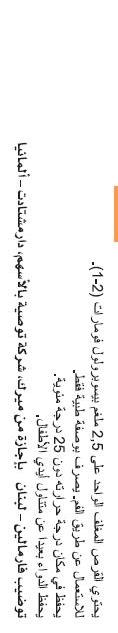 يحتوي القرص المغلف الواحد على 2,5 ملغم بيسوبرولول فومارات (1-2).
للاستعمال عن طريق الفم. يصرف بوصفة طبية فقط.
يحفظ في مكان درجة حرارته دون 25 درجة مئوية.
يحفظ الدواء بعيدا عن متناول أيدي الأطفال.
توضيب فارمالين - لبنان بإجازة من ميرك، شركة توصية بالأسهم، دارمشتادت - ألمانيا